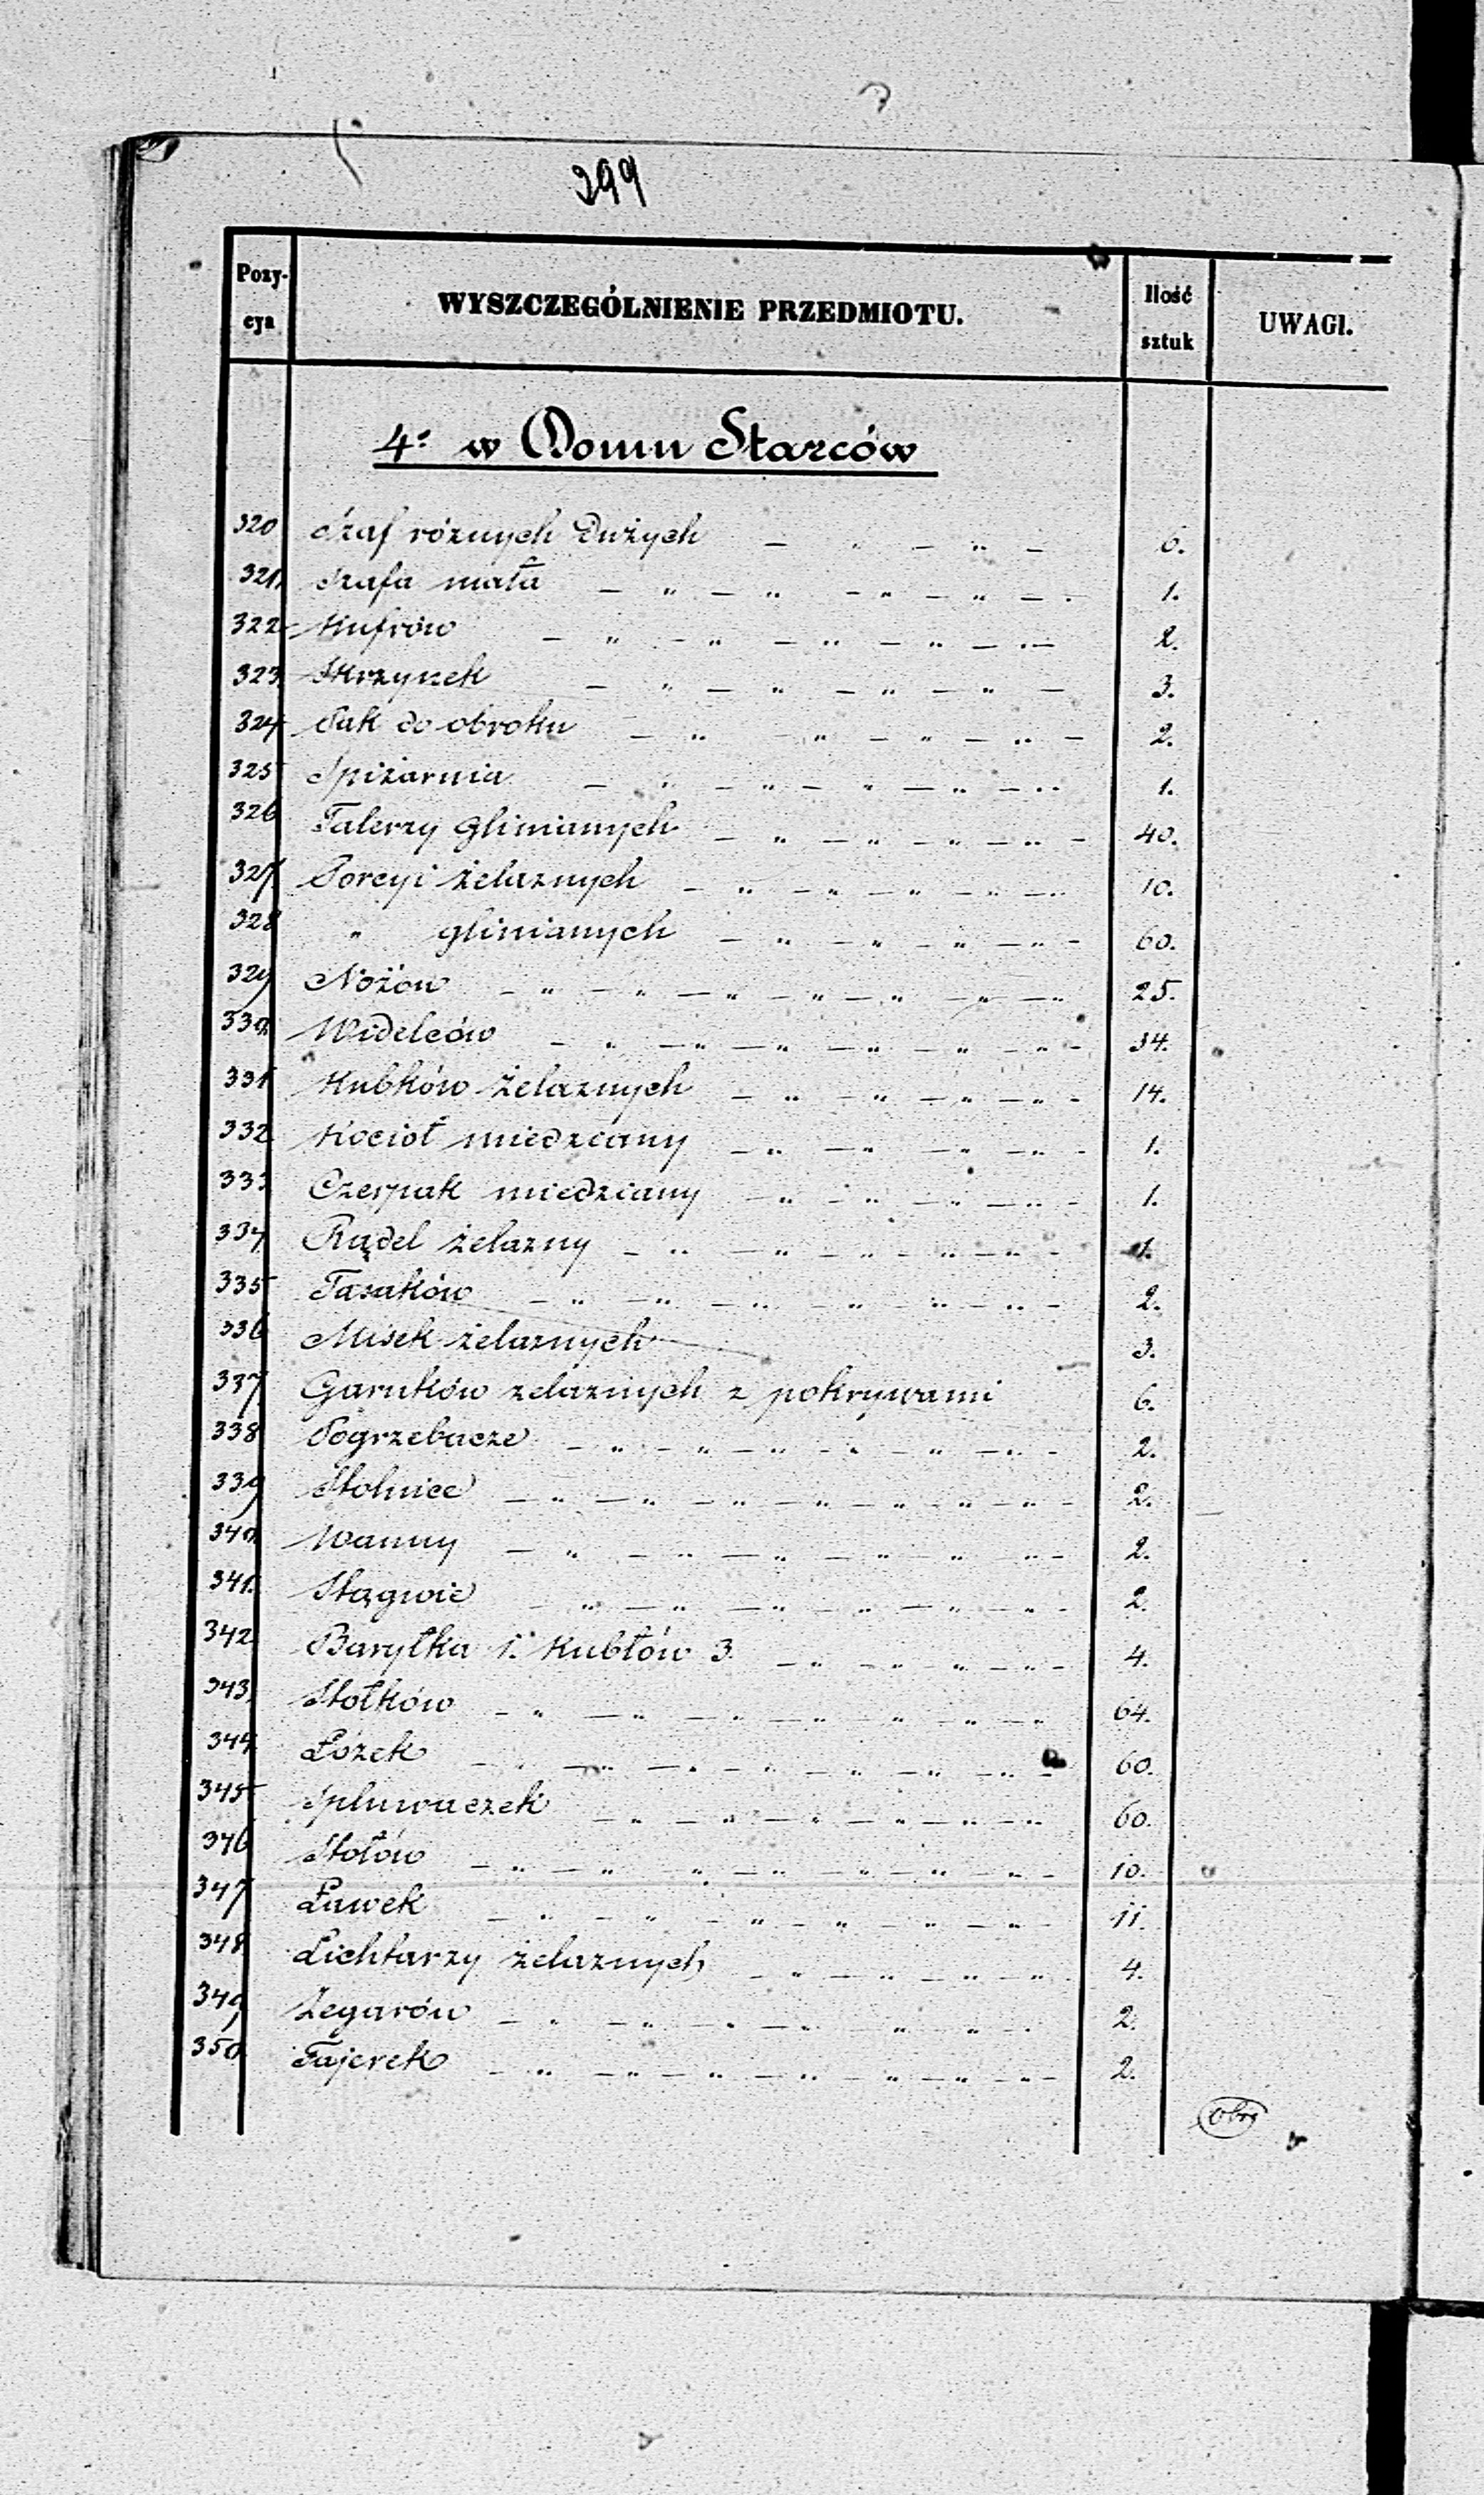 299
Pozy-cya WYSZCZEGÓLNIENIE PRZEDMIOTU. Ilość sztuk UWAGI.
4o w Domu Starców
320 Szaf różnych Dużych — „ — „ — 6.
321. Szafa mała — „ — „ — „ — „ — 1.
322 Kufrów — „ — „ — „ — „ — 2.
323 Skrzynek — „ — „ — „ — „ — 3.
324 Pak do obroku — „ — „ — „ — „ — 2.
325 Spiżarnia — „ — „ — „ — „ — 1.
326 Talerzy glinianych — „ — „ — „ — „ — 40.
327 Porcyi żelaznych — „ — „ — „ — „ 10.
328 „ glinianych — „ — „ — „ — „ — 60.
329 Nożów — „ — „ — „ — „ — „ — „ — 25.
330. Widelców — „ — „ — „ — „ — „ — „ — 34.
331 Kubków żelaznych — „ — „ — „ — „ — 14.
332 Kocioł miedziany — „ — „ — „ — „ — 1.
333 Czerpak miedziany — „ — „ — „ — „ — 1.
334 Rądel żelazny — „ — „ — „ — „ — „ — 1.
335 Tasaków — „ — „ — „ — „ — „ — „ — 2.
336 Misek żelaznych 3.
337 Garnków żelaznych z pokrywami 6.
338 Pogrzebacze — „ — „ — „ — „ — „ — „ — 2.
339 Stolnice — „ — „ — „ — „ — „ — „ — 2.
340. Wanny — „ — „ — „ — „ — „ — 2.
341. Stągwie — „ — „ — „ — „ — „ — „ — 2.
342 Baryłka 1. Kubłów 3. — „ — „ — „ — „ — 4.
343. Stołków — „ — „ — „ — „ — „ — „ — „ 64.
344 Łóżek — „ — „ — „ — „ — „ — „ — 60.
345 Spluwaczek — „ — „ — „ — „ — „ — „ 60.
346 Stołów — „ — „ — „ — „ — „ — „ — 10.
347 Ławek — „ — „ — „ — „ — „ — „ — 11.
348 Lichtarzy żelaznych — „ — „ — „ — „ 4.
349 Zegarów — „ — „ — „ — „ — „ — „ 2.
350. Fajerek — „ — „ — „ — „ — „ — „ — 2.